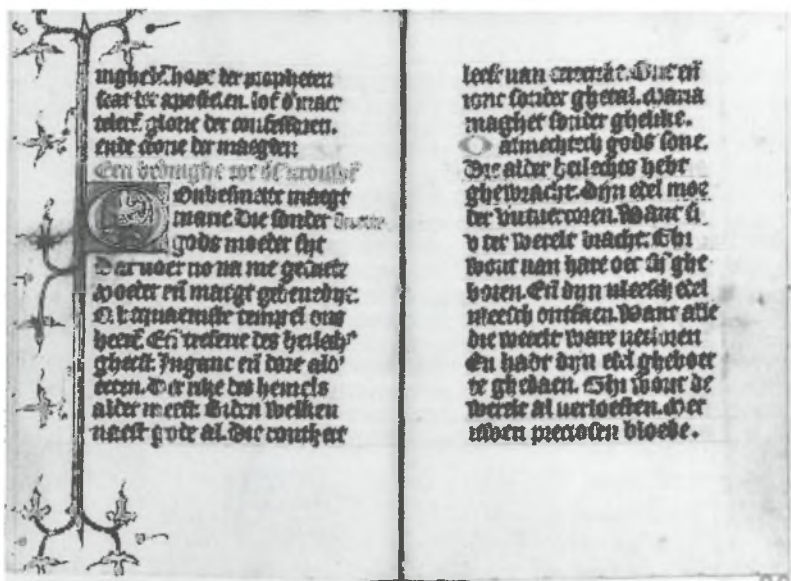 inghelē. hope der propheten
scat der apostelen. lof d' maer
telerē. glorie der confessoren.
ende crone der maegden
Een bedinghe tot ōs vrouwē
Onbesmette maegt
marie. Die sonder
gods moeder sijt
Dat voer no na me gesciede
Moeder eñ maegt gebenedijt.
O bequaemste tempel ons
heerē. Eñ tresore des heilechs
gheest. Inganc eñ dore ald'
eeren. Der rike des hemels
alder meest. Biden welken
naest gode al. Die
leeft van Out eñ
ionc sonder ghetal. Maria
maghet sonder ghelike.
O almechtech gods sone.
Die alder heilechts hebt
ghewracht. Dijn edel moe
der vutuercoren. Want si
v ter werelt bracht. Ghi
wout van hare oec sijn ghe
boren. Eñ dijn vleesch edel
vleesch ontfaen. Want alle
die werelt ware verloren
En hadt dijn edel gheboert
te ghedaen. Ghi wout de
werelt al verloessen. Met
uwen preciosen bloede.